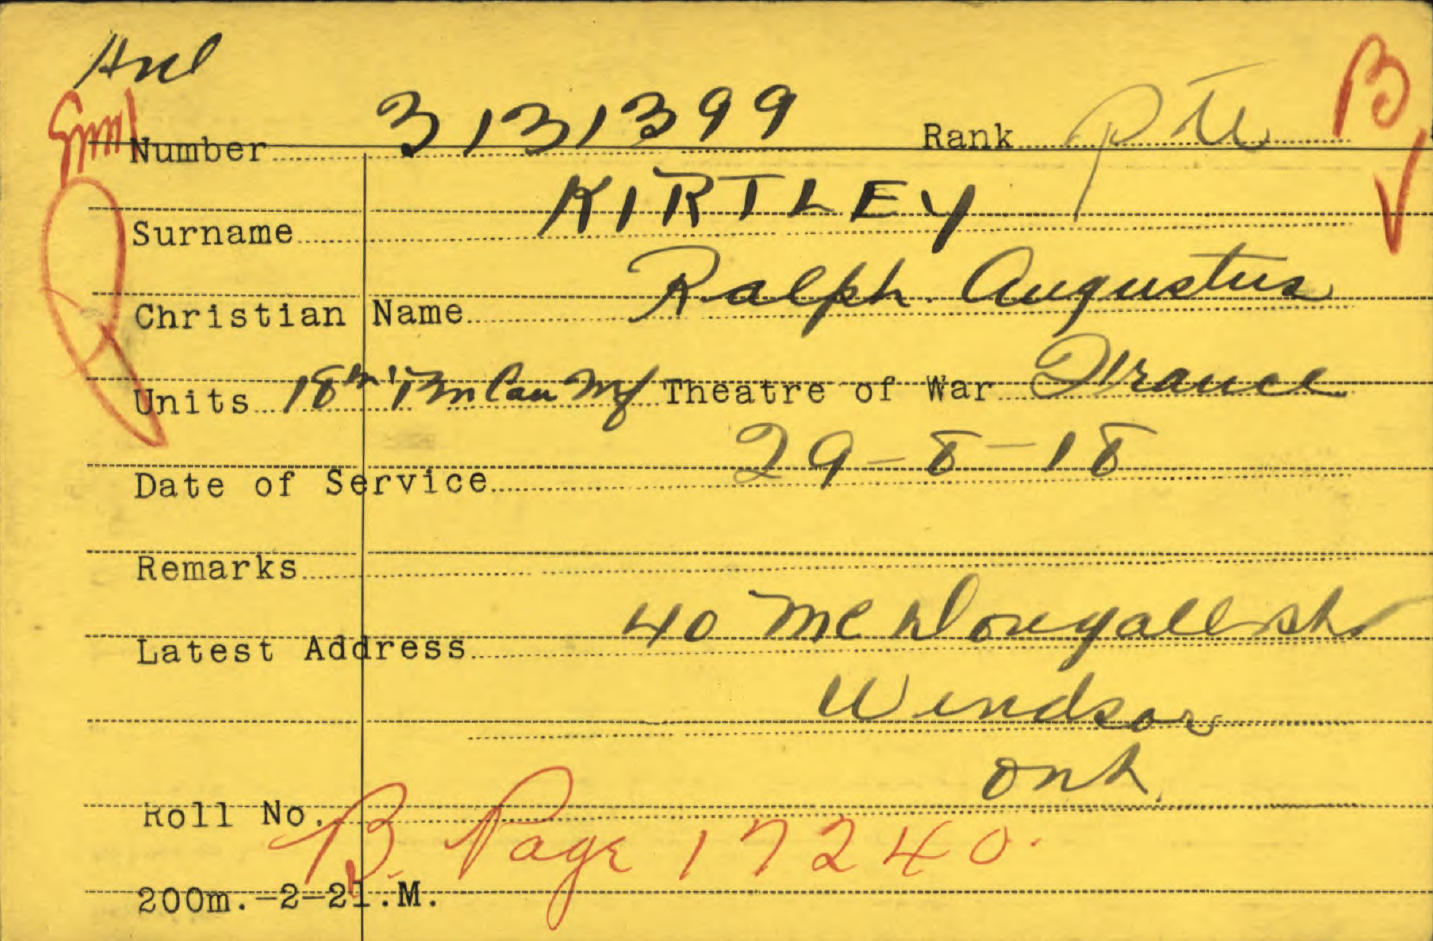 Number 3131399 Rank Pte B
Surname KIRTLEY
Christian Name Ralph Augustus
Units 18th Bn Can Inf Theatre of War France
Date of Service 29-8-18
Remarks
Latest Address 40 McDougall St.
Windsor
Ont.
Roll No. B. Page 17240.
200m.-2-21.M.